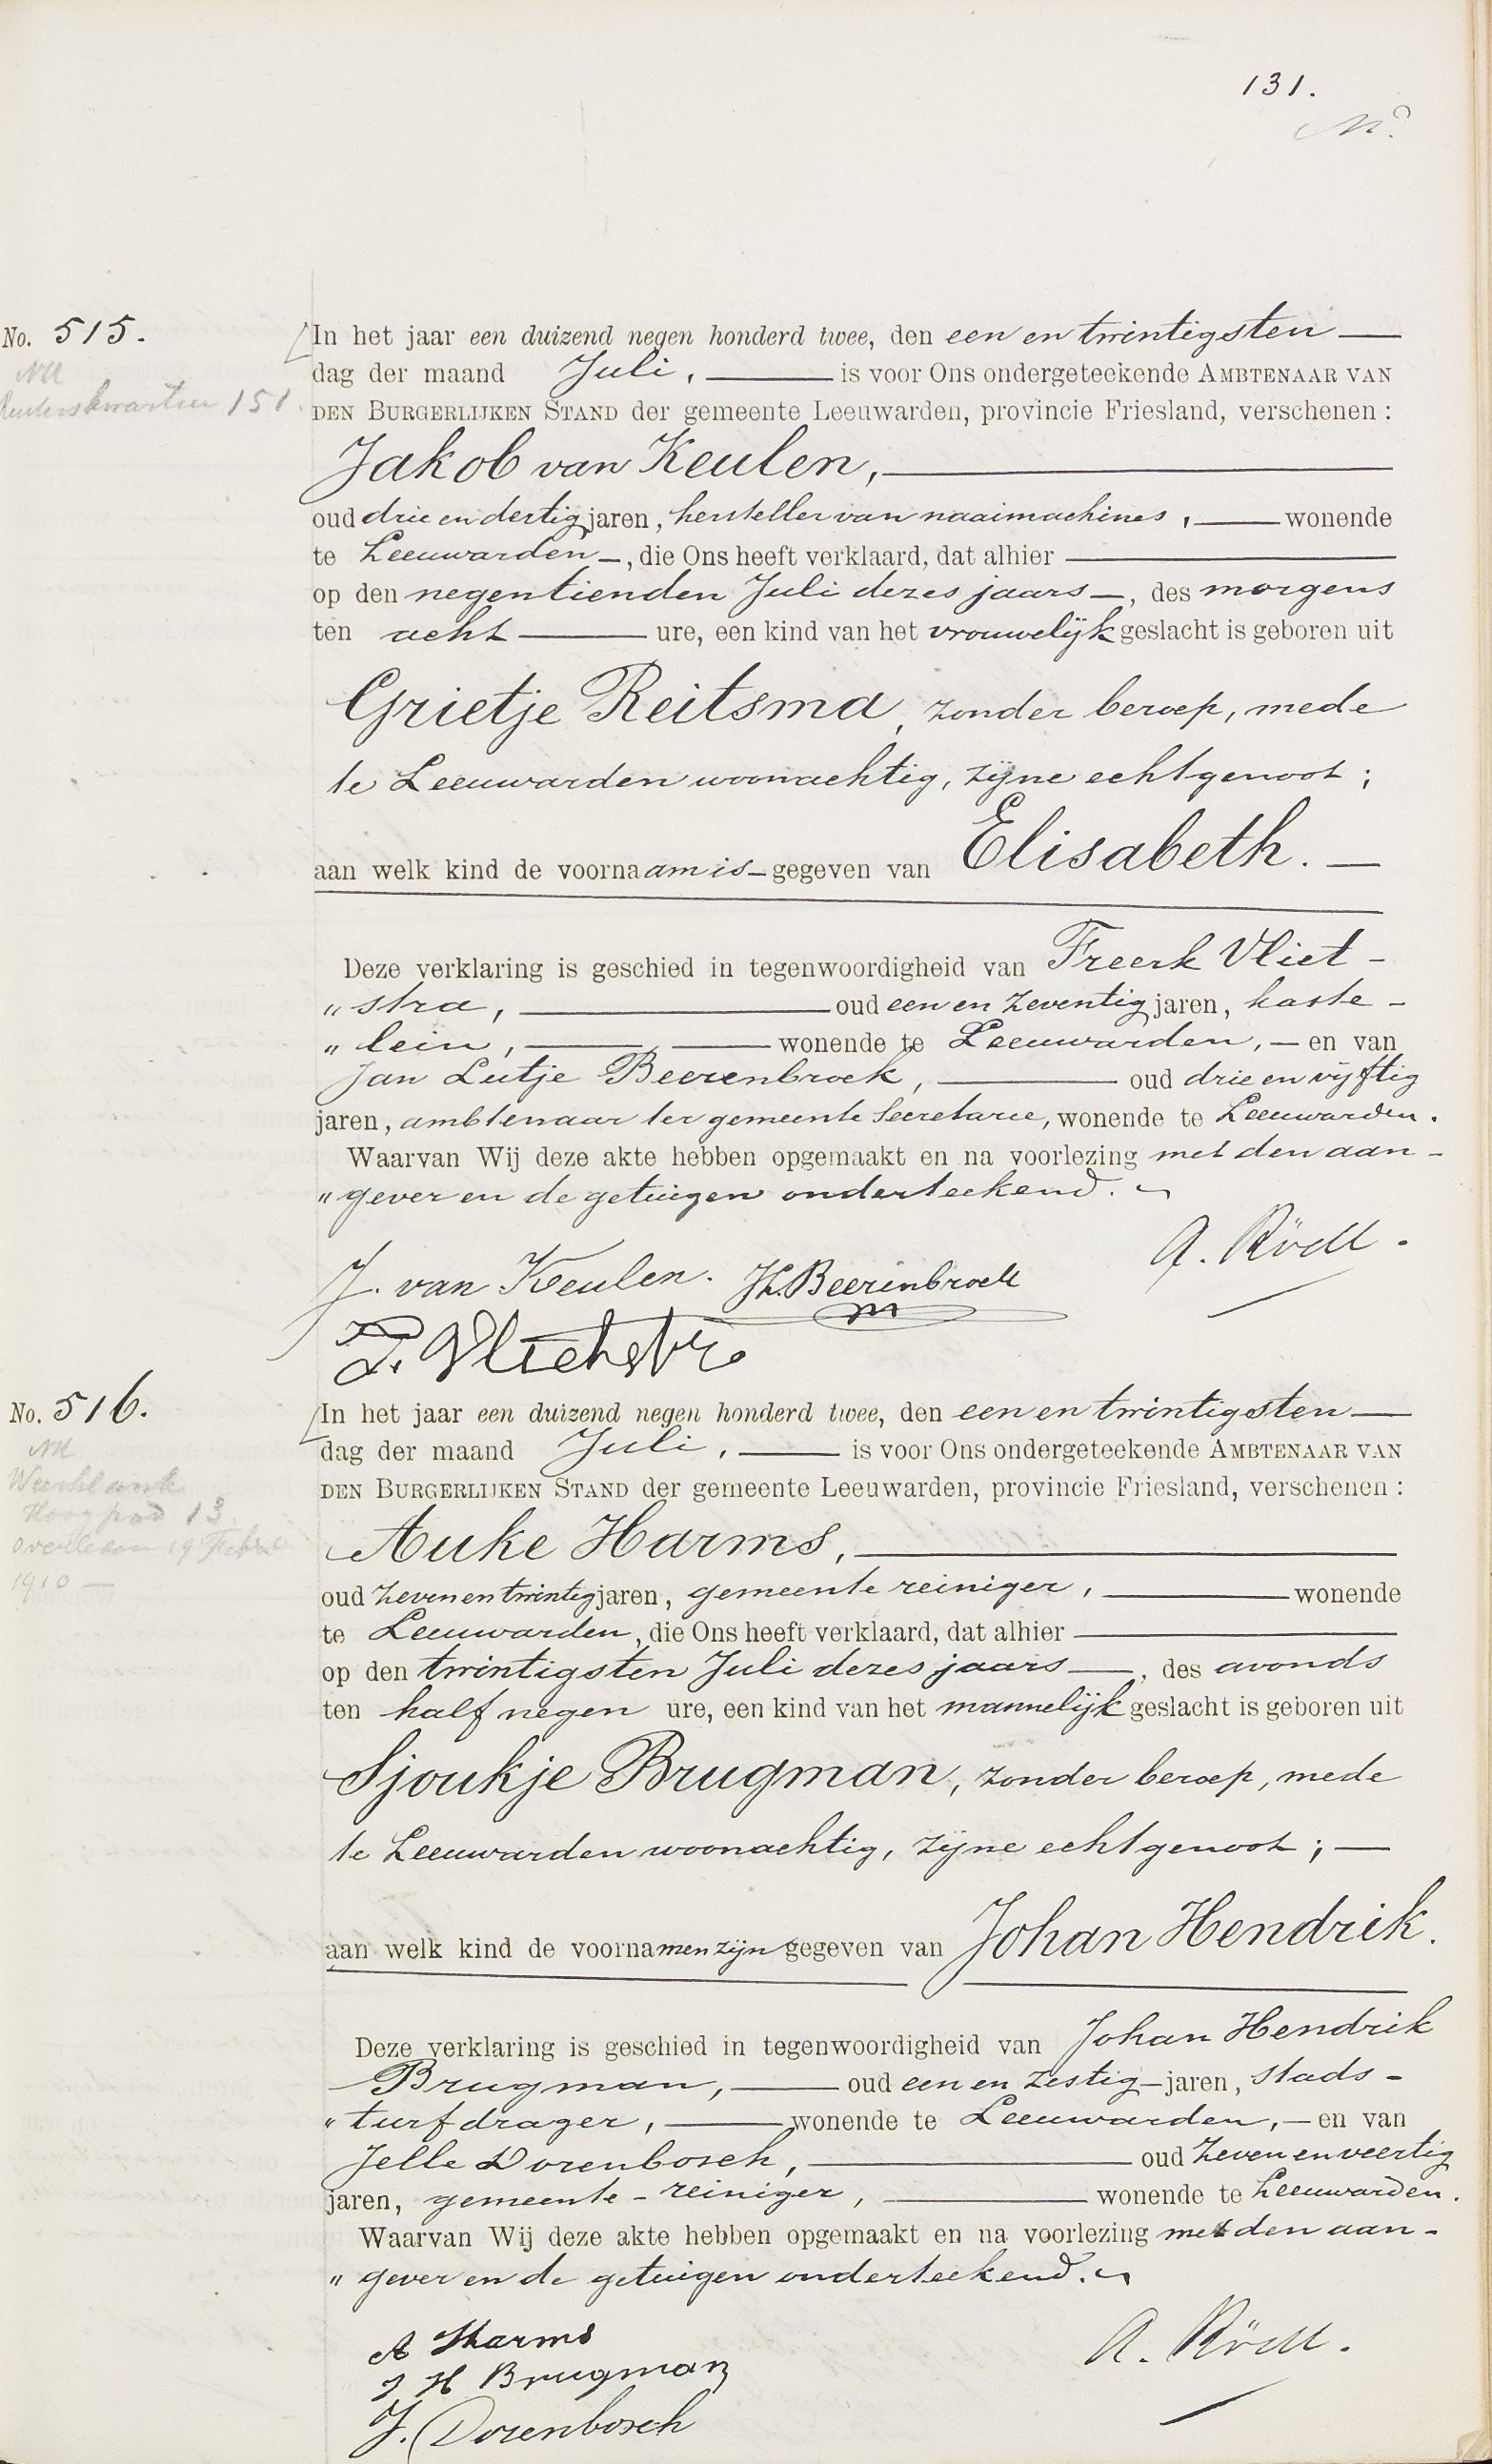 131.
No. 515.
151
In het jaar een duizend negen honderd twee, den een en twintigsten —
dag der maand Juli, — is voor Ons ondergeteekende AMBTENAAR VAN
DEN BURGERLIJKEN STAND der gemeente Leeuwarden, provincie Friesland, verschenen :
Jakob van Keulen, —
oud drie en dertig jaren, hersteller van naaimachines, — wonende
te Leeuwarden —, die Ons heeft verklaard, dat alhier —
op den negentienden Juli dezes jaars —, des morgens
ten acht — ure, een kind van het vrouwelijk geslacht is geboren uit
Grietje Reitsma, zonder beroep, mede
te Leeuwarden woonachtig, zijne echtgenoot ;
aan welk kind de voornaam is — gegeven van Elisabeth. —
Deze verklaring is geschied in tegenwoordigheid van Freerk Vliet -
„ stra, — oud een en zeventig jaren, kaste -
„ lein, — wonende te Leeuwarden, — en van
Jan Lutje Beerenbroek, — oud drie en vijftig
jaren, ambtenaar ter gemeente Secretarie, wonende te Leeuwarden.
Waarvan Wij deze akte hebben opgemaakt en na voorlezing met den aan -
„ gever en de getuigen onderteekend.
A. Röell.
J. van Keulen. JL. Beerenbroek
F. Vlietstra
No. 516.
Hoogpad 13
overleden 19 Febr
1910 —
In het jaar een duizend negen honderd twee, den een en twintigsten —
dag der maand Juli, — is voor Ons ondergeteekende AMBTENAAR VAN
DEN BURGERLIJKEN STAND der gemeente Leeuwarden, provincie Friesland, verschenen :
Auke Harms, —
oud zeven en twintig jaren, gemeente reiniger, — wonende
te Leeuwarden, die Ons heeft verklaard, dat alhier —
op den twintigsten Juli dezes jaars —, des avonds
ten half negen ure, een kind van het mannelijk geslacht is geboren uit
Sjoukje Brugman, zonder beroep, mede
te Leeuwarden woonachtig, zijne echtgenoot ; —
aan welk kind de voornamen zijn gegeven van Johan Hendrik.
Deze verklaring is geschied in tegenwoordigheid van Johan Hendrik
Brugman, — oud een en zestig — jaren, stads -
„ turfdrager, — wonende te Leeuwarden, — en van
Jelle Dorenbosch, — oud zeven en veertig
jaren, gemeente - reiniger, — wonende te Leeuwarden.
Waarvan Wij deze akte hebben opgemaakt en na voorlezing met den aan -
„ gever en de getuigen onderteekend.
A Harms
J H Brugman
A. Röell.
J. Dorenbosch